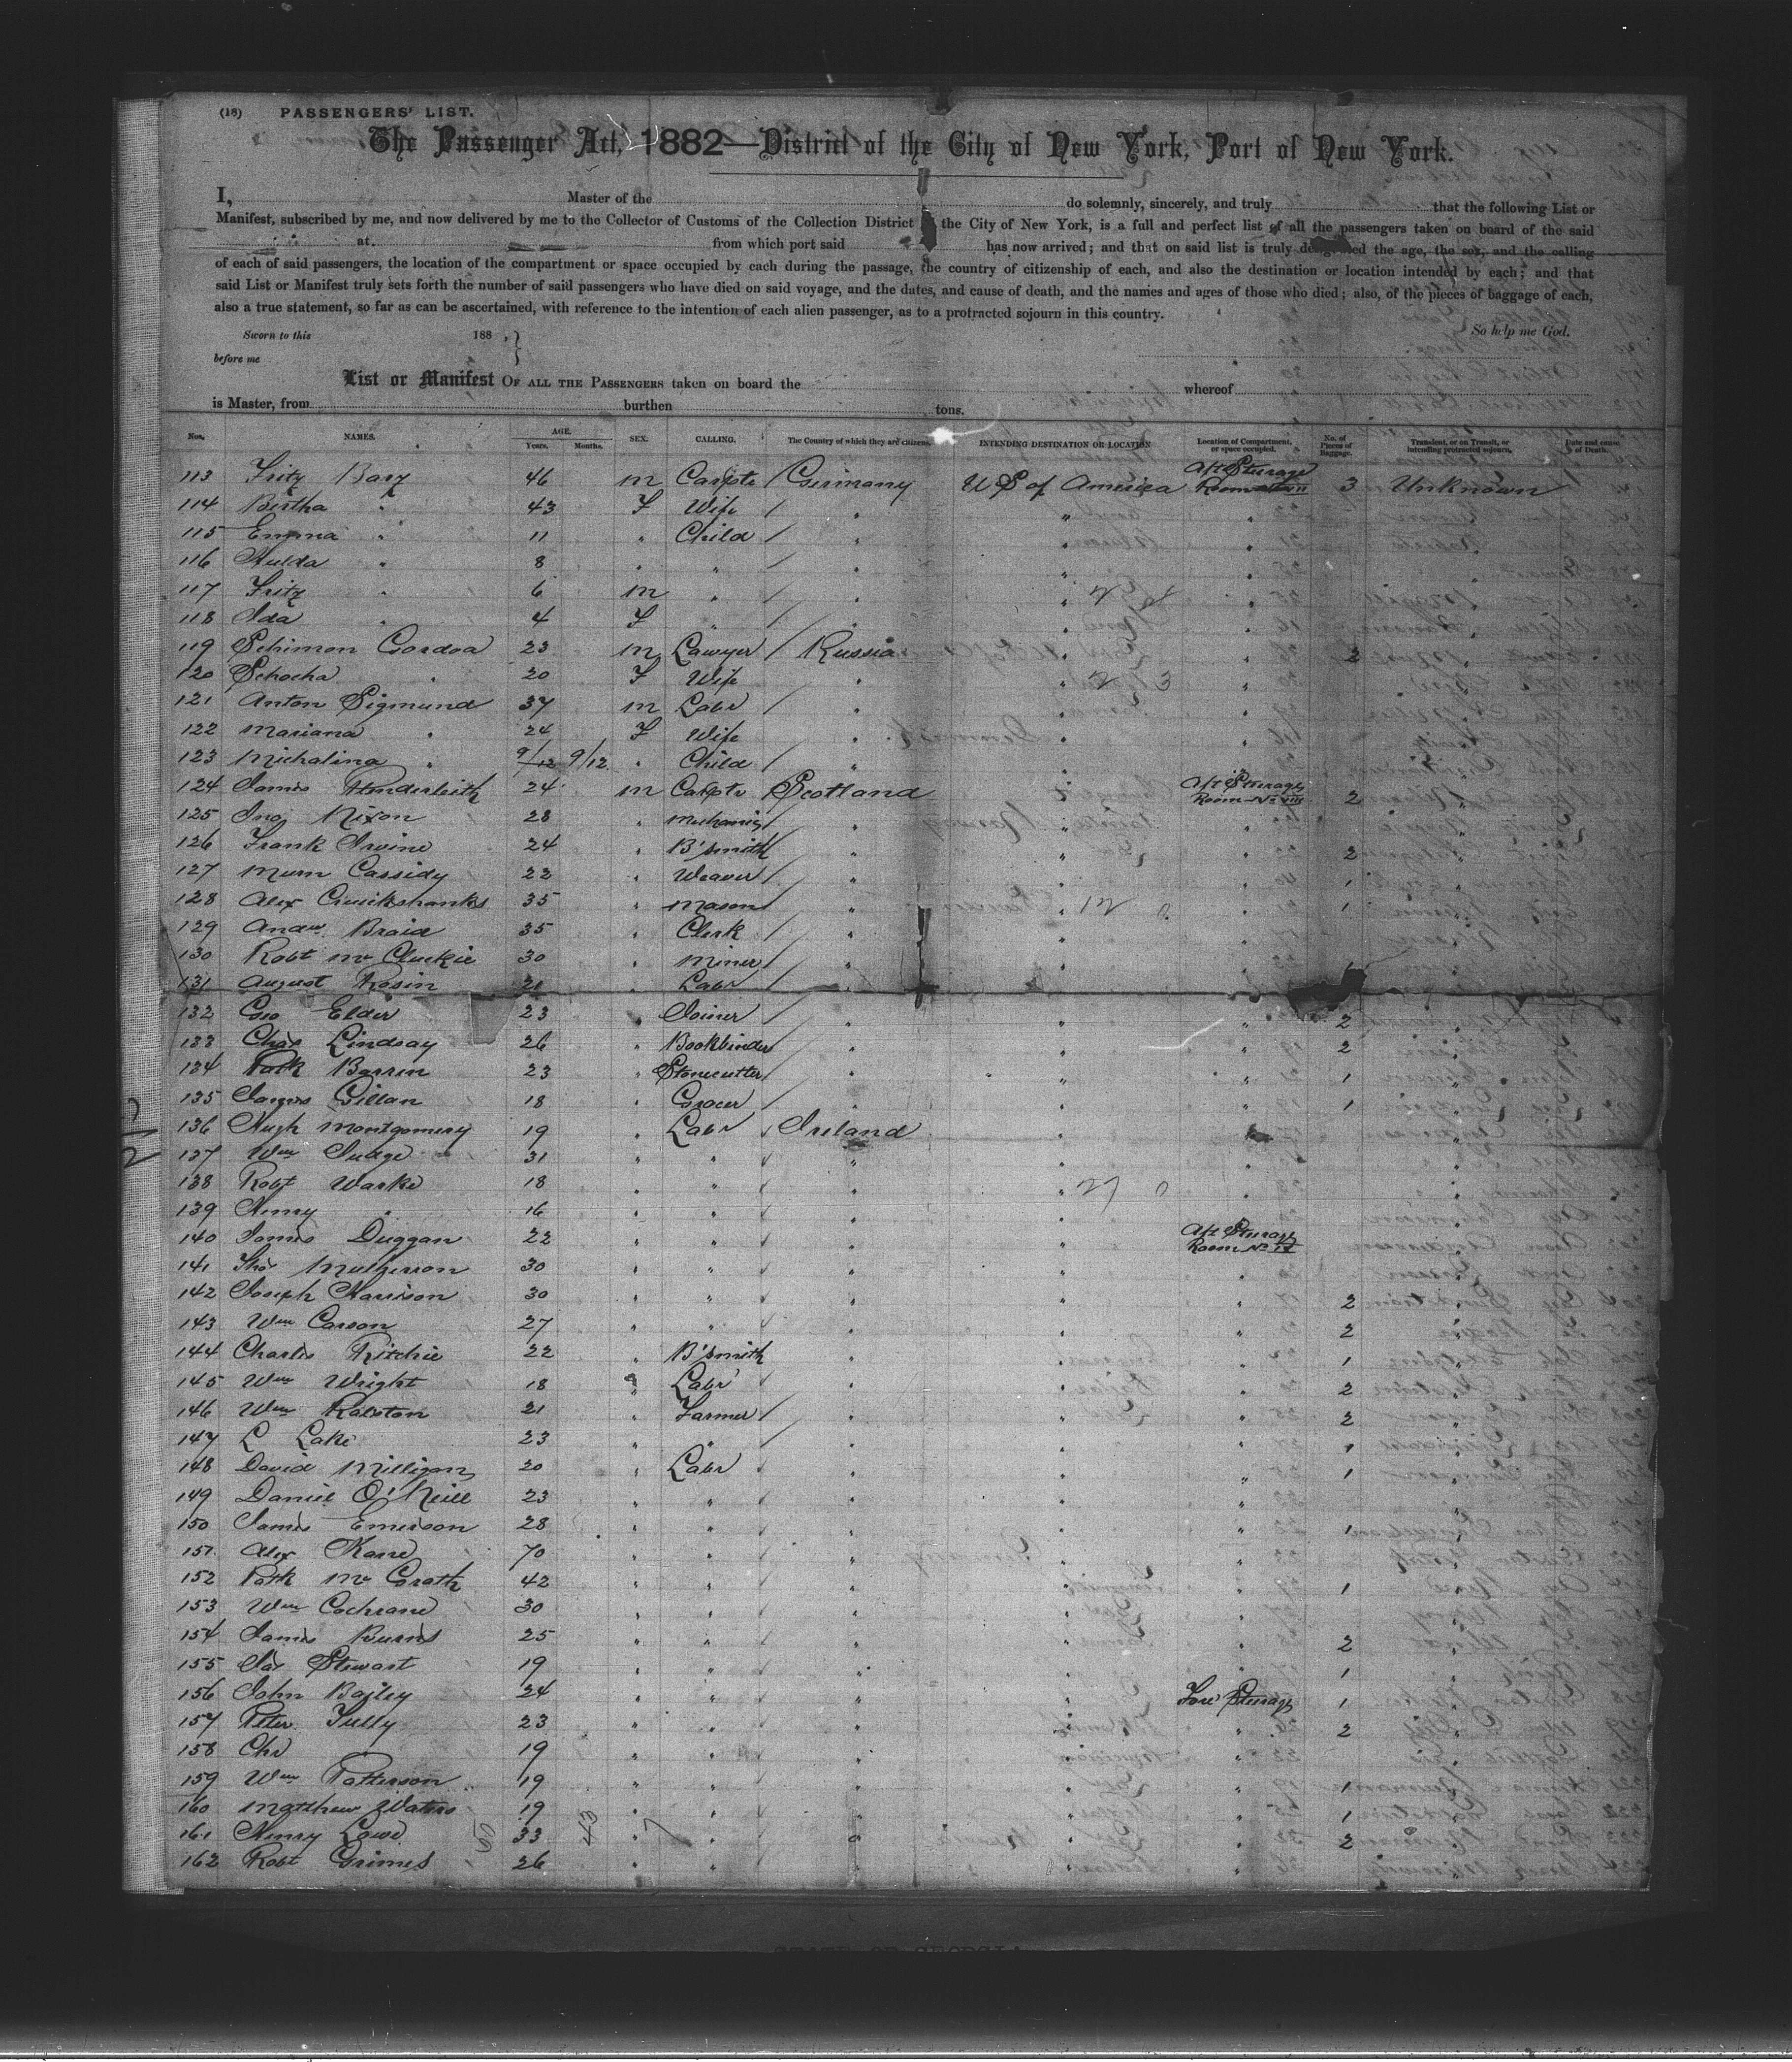 (18) PASSENGERS' LIST.
The Passenger Act, 1882—District of the City of New York, Port of New York.
I, Master of the do solemnly, sincerely, and truly that the following List or
Manifest, subscribed by me, and now delivered by me to the Collector of Customs of the Collection District the City of New York, is a full and perfect list of all the passengers taken on board of the said
at from which port said has now arrived; and that on said list is truly designed the age, the sex, and the calling
of each of said passengers, the location of the compartment or space occupied by each during the passage, the country of citizenship of each, and also the destination or location intended by each; and that
said List or Manifest truly sets forth the number of said passengers who have died on said voyage, and the dates, and cause of death, and the names and ages of those who died; also, of the pieces of baggage of each,
also a true statement, so far as can be ascertained, with reference to the intention of each alien passenger, as to a protracted sojourn in this country.
Sworn to this 188 , } So help me God.
before me
List or Manifest OF ALL THE PASSENGERS taken on board the whereof
is Master, from burthen tons.
Nos. NAMES. AGE. Years. Months. SEX. CALLING. The Country of which they are citizens. INTENDING DESTINATION OR LOCATION Location of Compartment, or space occupied. No. of Pieces of Baggage. Transient, or on Transit, or intending protracted sojourn. Date and cause of Death.
113 Fritz Barz 46 m Carptr / Germany U S of America Aft Sturage Room 3 Unknown
114 Bertha " 43 F Wife / " " "
115 Emma " 11 " Child / " " "
116 Hulda " 8 " " / " " "
117 Fritz " 6 m " / " " "
118 Ida " 4 F " / " " "
119 Schimon Gordoa 23 m Lawyer / Russia " " 2
120 Schocha " 20 F Wife " " "
121 Anton Sigmund 37 m Labr / " " "
122 Mariana " 24 F Wife " " "
123 Michalina " 9/12 9/12 " Child / " " "
124 James 24 m Carptr Scotland " Aft Sturage Room No VIII 2 "
125 Jno Nixon 28 " Mechanic / " " "
126 Frank Irvine 24 " B'smith / " " " 2 "
127 Cassidy 22 " Weaver / " " " 1 "
128 Alex Cruikshanks 35 " Mason / " " " 1
129 Andw Braid 35 " Clerk / " " "
130 Robt Mc Cluckie 30 " Miner / " " " 1
131 August Rosin 21 " Labr / "
132 Geo Elder 23 " Joiner / " " " 2 "
133 Chas Lindsay 26 " Bookbinder / " " " 2 "
134 Patk Barrin 23 " Stonecutter / " " " 1 "
135 James Gillan 18 " Grocer / " " " 1 "
136 Hugh Montgomery 19 " Labr Ireland "
137 Wm 31 " " " " " "
138 Robt Warke 18 " " " " " "
139 Henry " 16 " " " " " "
140 James Duggan 22 " " " " Aft Sturage Room No IX "
141 Thos 30 " " " " " "
142 Joseph Harrison 30 " " " " " 2 "
143 Wm Carson 27 " " " " " 2 "
144 Charles Ritchie 22 " B'smith " " " 1 "
145 Wm Wright 18 " Labr " " " 2 "
146 Wm Ralston 21 " Farmer / " " " 2 "
147 L Lake 23 " " / " " " 1 "
148 David Milligan 20 " Labr " " " 1 "
149 Daniel O'Neill 23 " " " " " "
150 James Emerson 28 " " " " " 1 "
151 Alex Kane 70 " " " " " "
152 Patk Mc Grath 42 " " " " " 1 "
153 Wm Cochrane 30 " " " " " "
154 James Burns 25 " " " " " 2 "
155 Jas Stewart 19 " " " " " 1 "
156 John Bailey 24 " " " " Fore Sturage 1 "
157 Peter Tully 23 " " " " " 2 "
158 Chs 19 " " " " " "
159 Wm Patterson 19 " " " " " 1 "
160 Matthew Waters 19 " " " " " 1 "
161 Henry Lowe 33 " " " " " 2 "
162 Robt Grimes 26 " " " " " "